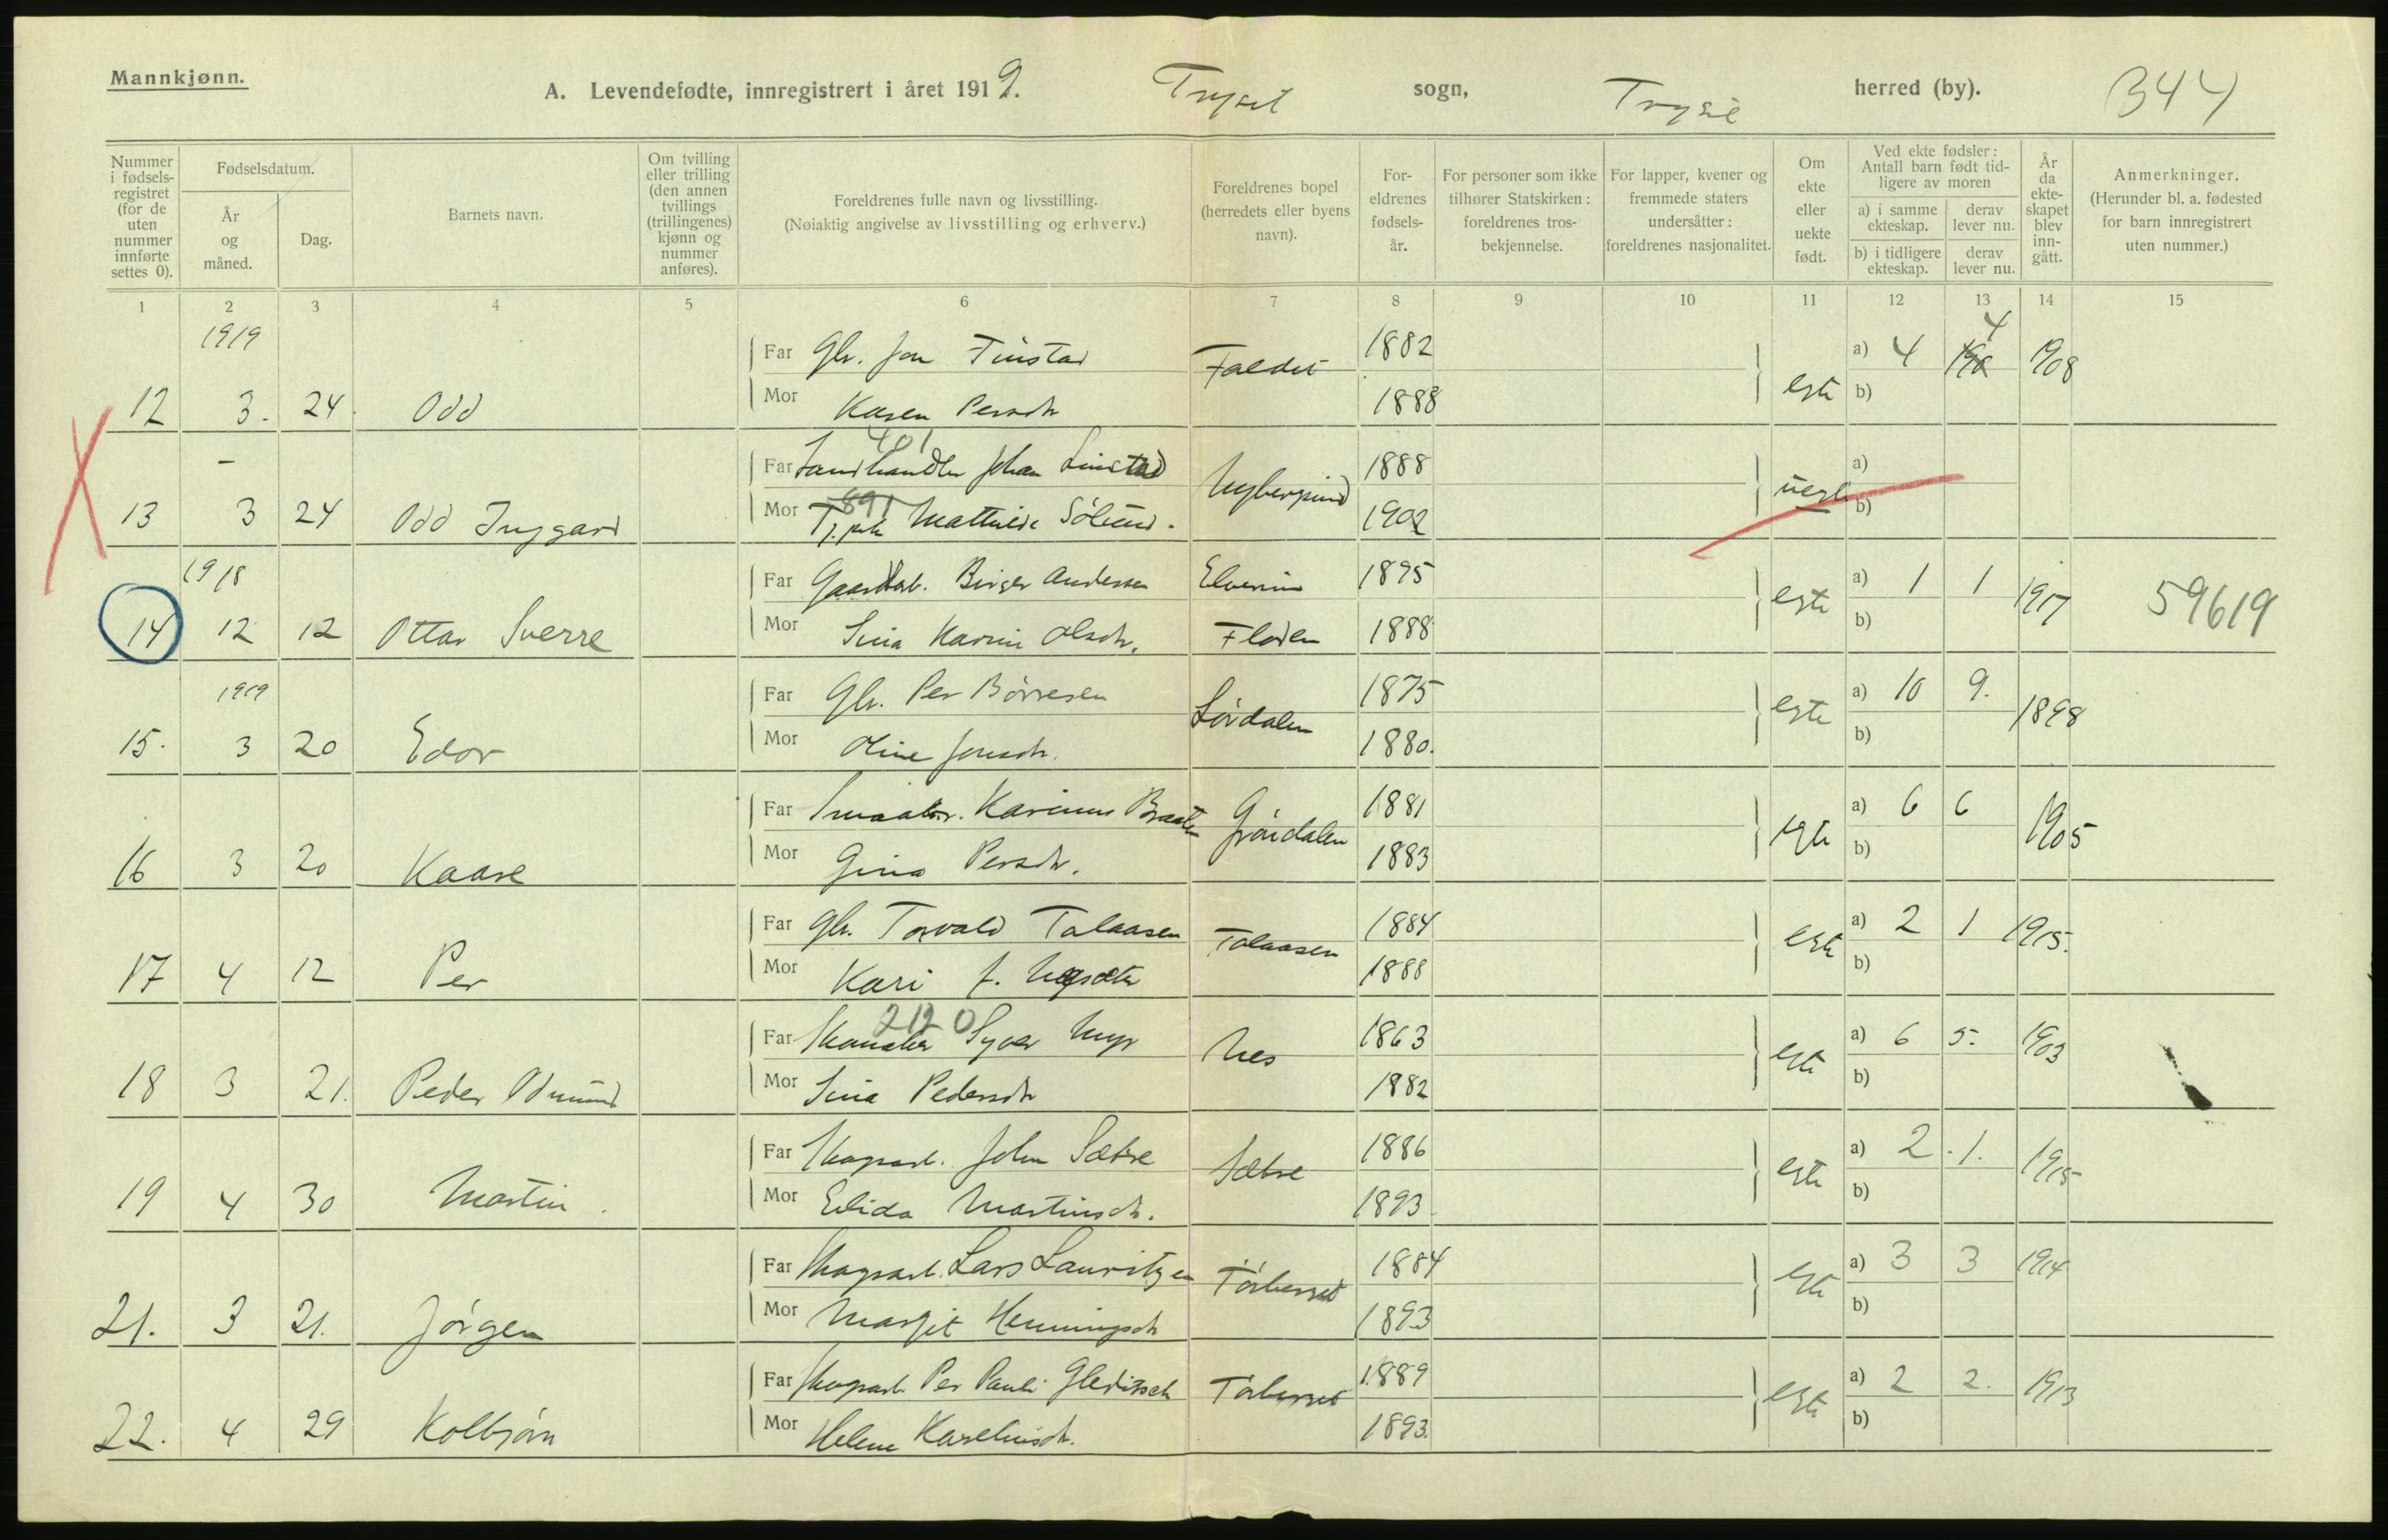 Mannkjønn.
A. Levendefødte, innregistrert i året 1919. Trysil sogn, Trysil herred (by). 344
Nummer i fødsels-registret (for de uten nummer innførte settes 0).
Fødselsdatum.
År og måned.
Dag.
Barnets navn.
Om tvilling eller trilling (den annen tvillings (trillingenes) kjønn og nummer anføres).
Foreldrenes fulle navn og livsstilling.
(Nøiaktig angivelse av livsstilling og erhverv.)
Foreldrenes bopel (herredets eller byens navn).
For-eldrenes fødsels-år.
For personer som ikke tilhører Statskirken: foreldrenes tros-bekjennelse.
For lapper, kvener og fremmede staters undersåtter: foreldrenes nasjonalitet.
Om ekte eller uekte født.
Ved ekte fødsler: Antall barn født tid-ligere av moren
a) i samme ekteskap.
derav lever nu.
b) i tidligere ekteskap.
derav lever nu.
År da ekte-skapet blev inn-gått.
Anmerkninger.
(Herunder bl. a. fødested for barn innregistrert uten nummer.)
1 2 3 4 5 6 7 8 9 10 11 12 13 14 15
1919
Far Gbr. Jon Finstad Faldet 1882 a) 4 4 1908
12 3. 24. Odd Mor Karen Persdtr 1888 egte b)
401
- Far Landhandler Johan Linstad Nybergsund 1888 a)
891
13 3 24 Odd Inggard Mor Tj.pike Mathilde Sølund. 1902 uegte b)
1918
Far Gaardbr. Birger Andersen Elverum 1895 a) 1 1 1917 59619
14 12 12 Ottar Sverre Mor Sina Karin Olsdtr. Floden 1888 egte b)
1919
Far Gbr. Per Børresen Lørdalen 1875 a) 10 9. 1898
15. 3 20 Edor Mor Oline Jonsdtr. 1880. egte b)
Far Smaabr. Karinus Braaten Grøndalen 1881 a) 6 6 1905
16 3 20 Kaare Mor Gina Persdtr. 1883 egte b)
Far Gbr. Torvald Talaasen Talaasen 1884 a) 2 1 1915.
17 4 12 Per Mor Kari J. 1888 egte b)
2120
Far Skomaker Syver Myr Nes 1863 a) 6 5. 1903
18 3 21. Peder Odmund Mor Sina Pedersdtr 1882 egte b)
Far Skogsarb. John Sætre Sætre 1886 a) 2. 1. 1915
19 4 30 Martin Mor Elida Martinsdtr. 1893 egte b)
Far Skogsarb. Lars Lauritzen Tørberget 1884 a) 3 3 1914
21. 3 21. Jørgen Mor Margit Henningsdtr 1893 egte b)
Far Skogsarb Per Pauli Gleditsch Tørberget 1889 a) 2 2. 1913
22. 4 29 Kolbjørn Mor Helene Karelinsdtr. 1893. egte b)